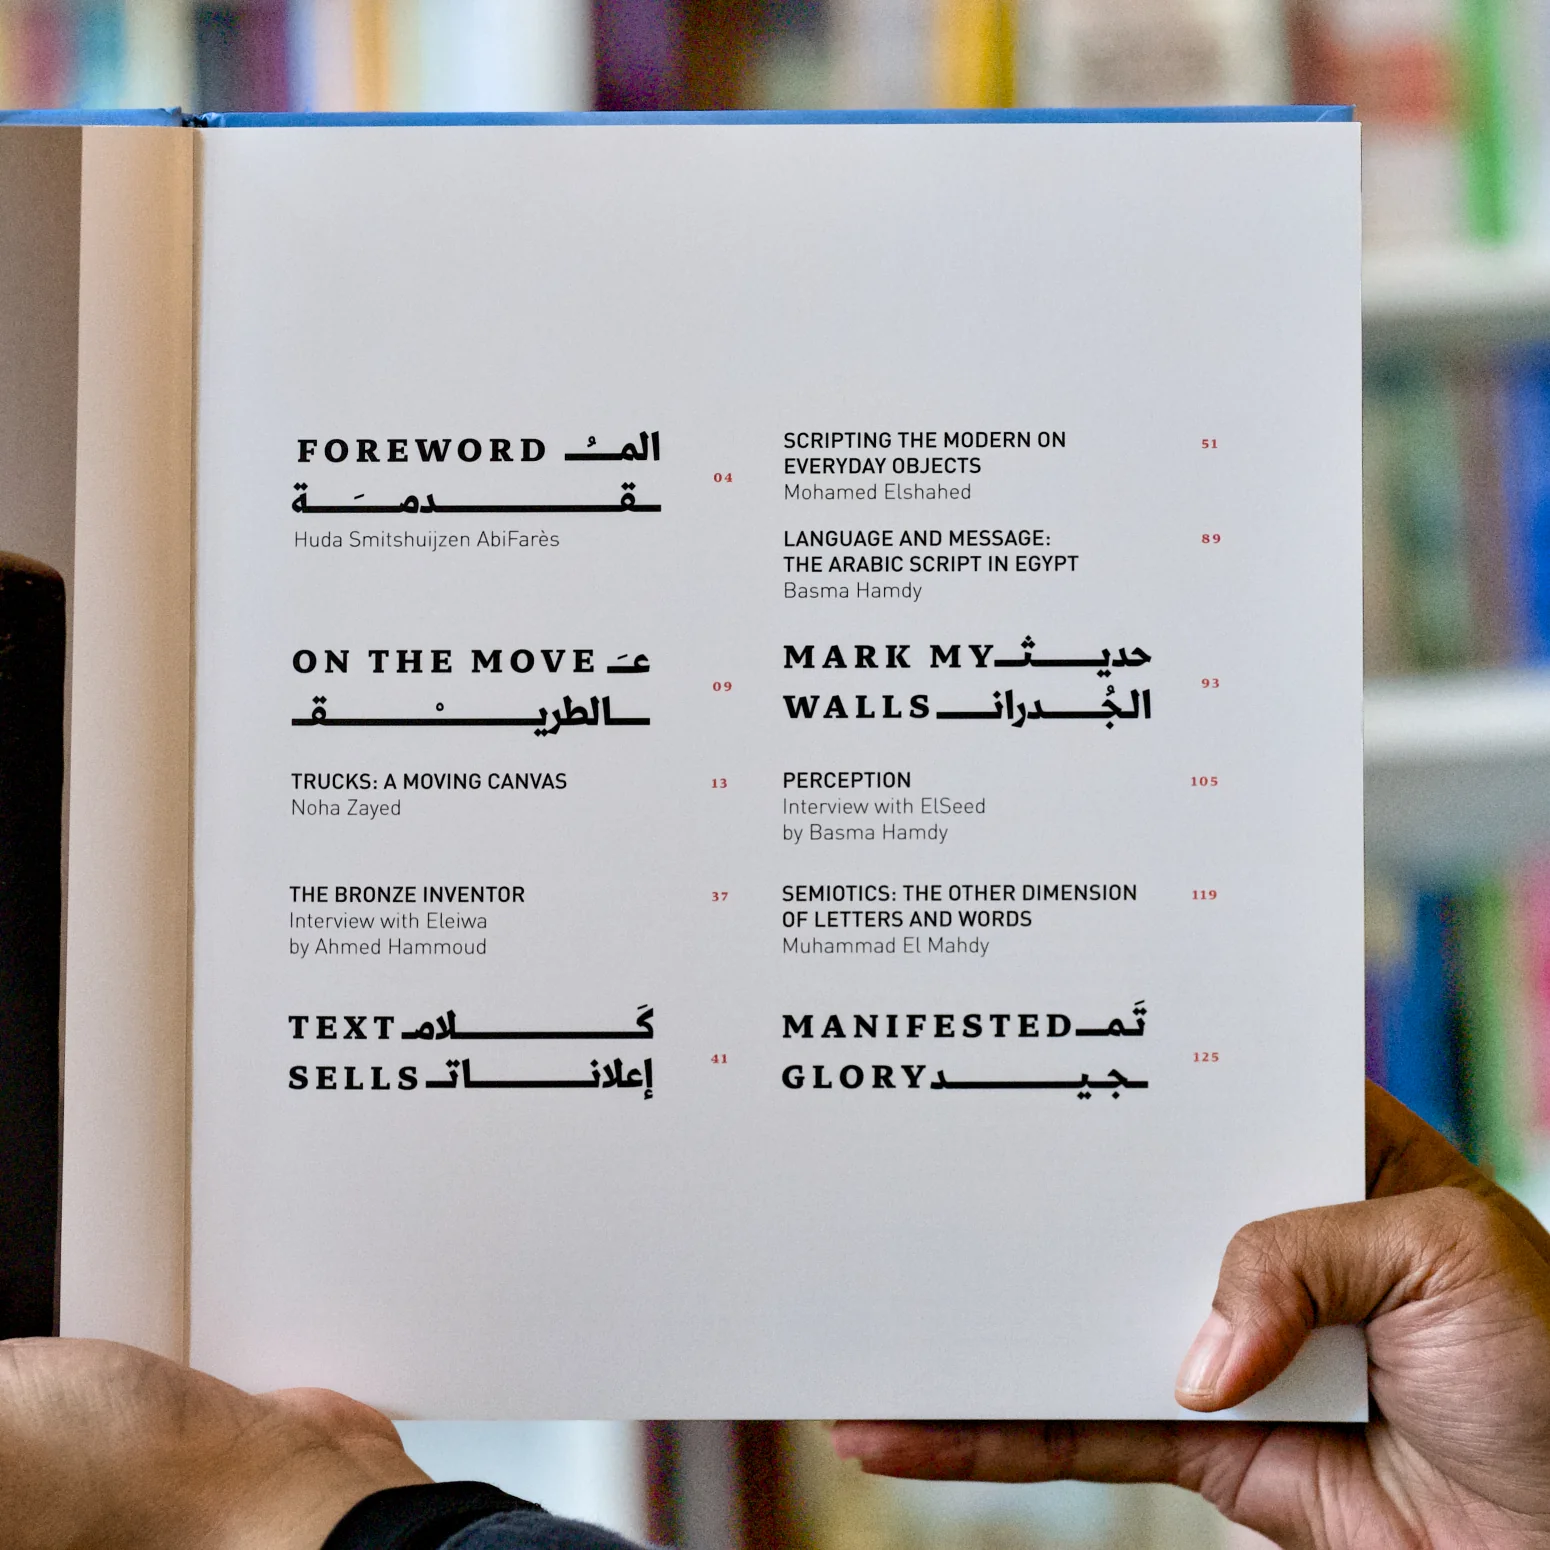 FOREWORD المُـ
ـقـدمـَـة
04
Huda Smitshuijzen AbiFarès
ON THE MOVE عـَـ
ـالطريـْـقـ
09
TRUCKS: A MOVING CANVAS 13
Noha Zayed
THE BRONZE INVENTOR 37
Interview with Eleiwa
by Ahmed Hammoud
TEXT كَـلامـ
SELLS إعلانـاتـ
41
SCRIPTING THE MODERN ON 51
EVERYDAY OBJECTS
Mohamed Elshahed
LANGUAGE AND MESSAGE: 89
THE ARABIC SCRIPT IN EGYPT
Basma Hamdy
MARK MY حديـثـ
WALLS الجُـدرانـ
93
PERCEPTION 105
Interview with ElSeed
by Basma Hamdy
SEMIOTICS: THE OTHER DIMENSION 119
OF LETTERS AND WORDS
Muhammad El Mahdy
MANIFESTED تَمـ
GLORY ـجـيـد
125